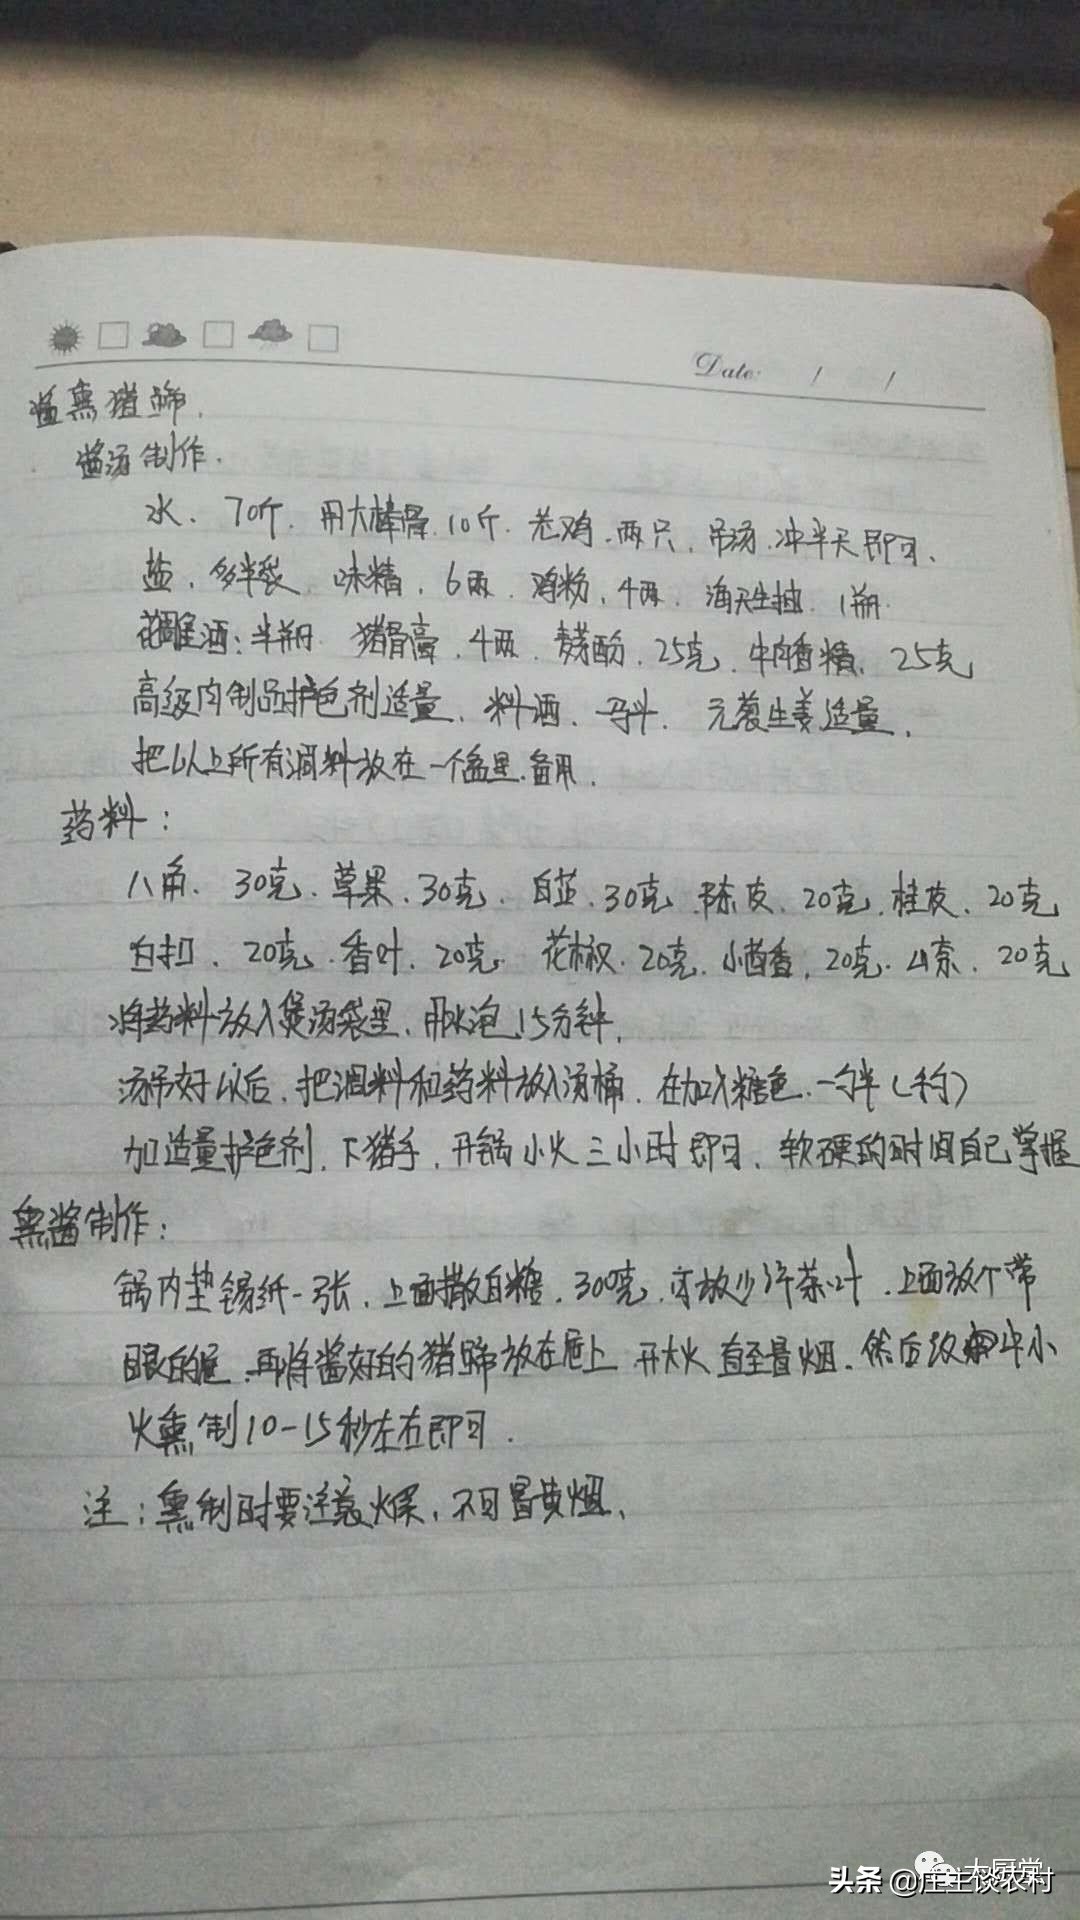 Date: / /
酱熏猪蹄.
酱汤制作.
水、70斤. 用大棒骨.10斤. 老鸡.两只.吊汤.冲半天即可、
盐、多半袋 味精、6两. 鸡粉、4两. 海天生抽. 1瓶.
花雕酒:半瓶 猪骨膏、4两、麦芽酚、25克、牛肉香精、25克
高级肉制品护色剂适量、料酒、一马斗. 元葱生姜适量.
把以上所有调料放在一个盆里.备用.
药料:
八角、30克.草果、30克. 白芷.30克.陈皮、20克、桂皮、20克
白扣、20克.香叶、20克. 花椒.20克.小茴香,20克.山奈、20克
将药料放入煲汤袋里、用水泡15分钟,
汤吊好以后、把调料和药料放入汤桶、在加入糖色.一勺半(手勺)
加适量护色剂,下猪手,开锅小火三小时即可、软硬的时间自己掌握
熏酱制作:
锅内垫锡纸一张、上面撒白糖、300克.放少许茶叶、上面放个带
眼的屉、再将酱好的猪蹄放在屉上 开大火 直至冒烟.然后改中小
火熏制10-15秒左右即可.
注:熏制时要注意火候,不可冒黄烟.
大厨堂
头条@庄主谈农村